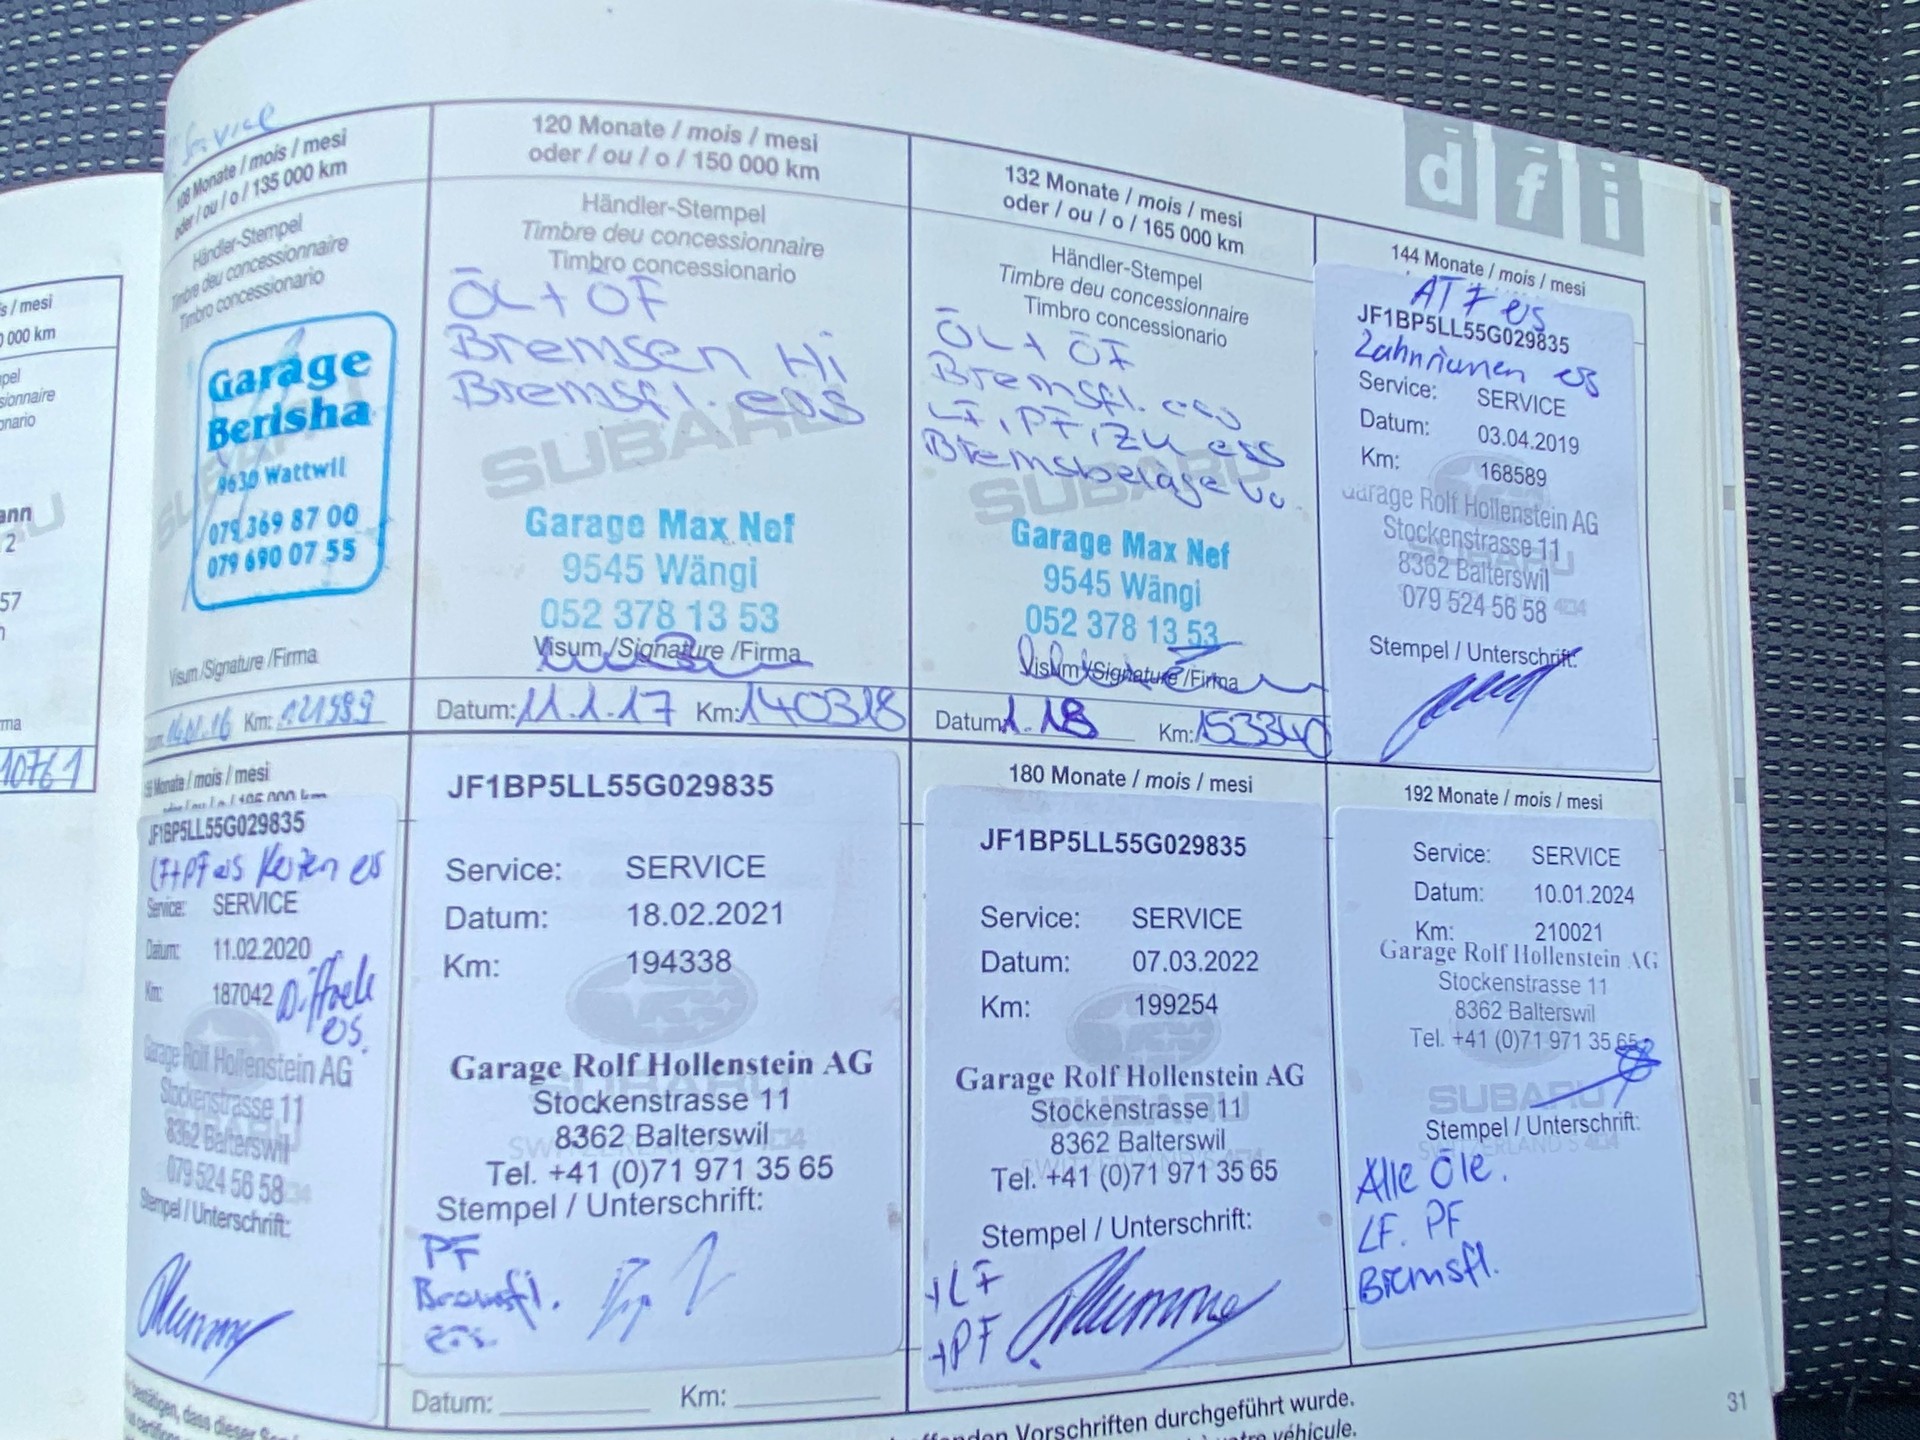 s / mesi
0 000 km
pel
sionnaire
onario
ann
2
57
rma
10761
Service
108 Monate / mois / mesi
oder / ou / o / 135 000 km
Händler-Stempel
Timbre deu concessionnaire
Timbro concessionario
Garage
Berisha
9630 Wattwil
079 369 87 00
079 690 07 55
Visum /Signature /Firma
Km: 121999
120 Monate / mois / mesi
oder / ou / o / 150 000 km
Händler-Stempel
Timbre deu concessionnaire
Timbro concessionario
ÖL + ÖF
Bremsen Hi
Bremsfl. ers
SUBARU
Garage Max Nef
9545 Wängi
052 378 13 53
Visum /Signature /Firma
Datum: 11.1.17 Km: 140318
132 Monate / mois / mesi
oder / ou / o / 165 000 km
Händler-Stempel
Timbre deu concessionnaire
Timbro concessionario
ÖL + ÖF
Bremsfl.
LF, PF, ZU ess
Bremsbeläge Vo
SUBARU
Garage Max Nef
9545 Wängi
052 378 13 53
Visum /Signature /Firma
Datum 1.18 Km: 153340
d f i
144 Monate / mois / mesi
ATF es
JF1BP5LL55G029835
Zahnriemen es
Service: SERVICE
Datum: 03.04.2019
Km: 168589
Garage Rolf Hollenstein AG
Stockenstrasse 11
8362 Balterswil
079 524 56 58
Stempel / Unterschrift:
Monate / mois / mesi
JF1BP5LL55G029835
LF+PF es Kerzen es
Service: SERVICE
Datum: 11.02.2020
Km: 187042
es.
Garage Rolf Hollenstein AG
Stockenstrasse 11
8362 Balterswil
079 524 56 58
Stempel / Unterschrift:
JF1BP5LL55G029835
Service: SERVICE
Datum: 18.02.2021
Km: 194338
Garage Rolf Hollenstein AG
Stockenstrasse 11
8362 Balterswil
Tel. +41 (0)71 971 35 65
Stempel / Unterschrift:
PF
Bremsfl.
ers.
Datum: Km:
180 Monate / mois / mesi
JF1BP5LL55G029835
Service: SERVICE
Datum: 07.03.2022
Km: 199254
Garage Rolf Hollenstein AG
Stockenstrasse 11
8362 Balterswil
Tel. +41 (0)71 971 35 65
Stempel / Unterschrift:
+LF
+PF
192 Monate / mois / mesi
Service: SERVICE
Datum: 10.01.2024
Km: 210021
Garage Rolf Hollenstein AG
Stockenstrasse 11
8362 Balterswil
Tel. +41 (0)71 971 35 65
SUBARU
Stempel / Unterschrift:
Alle Öle.
LF. PF
Bremsfl.
bestätigen, dass dieser
Vorschriften durchgeführt wurde.
véhicule.
31